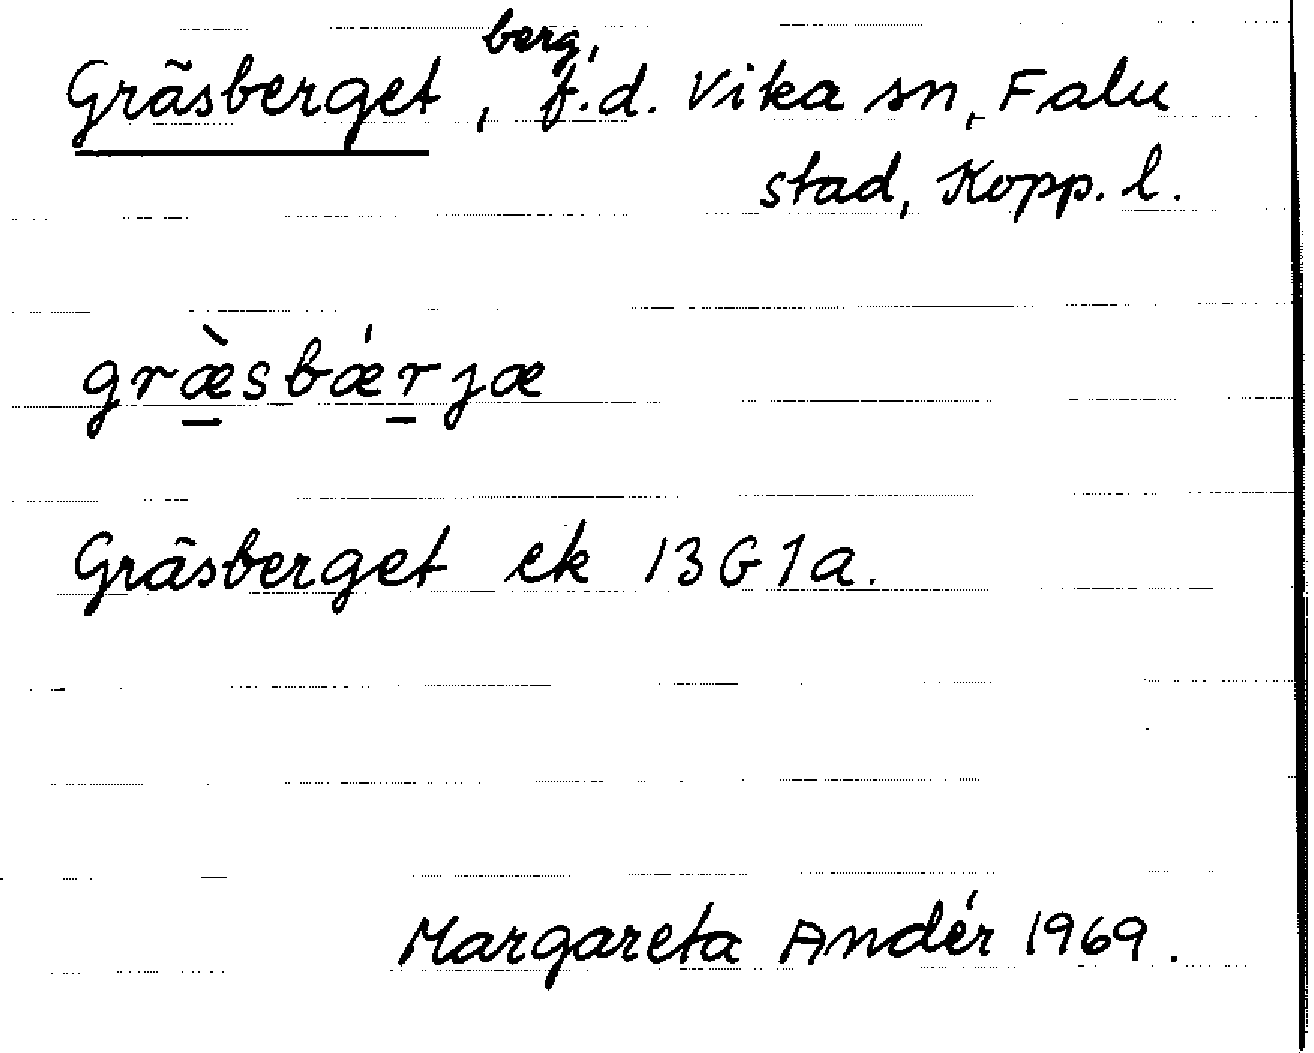 Gräsberget, berg, f.d. Vika sn, Falu
stad, Kopp. l.
græ̱̀sbǽṟjæ
Gräsberget ek 13G1a.
Margareta Andér 1969.